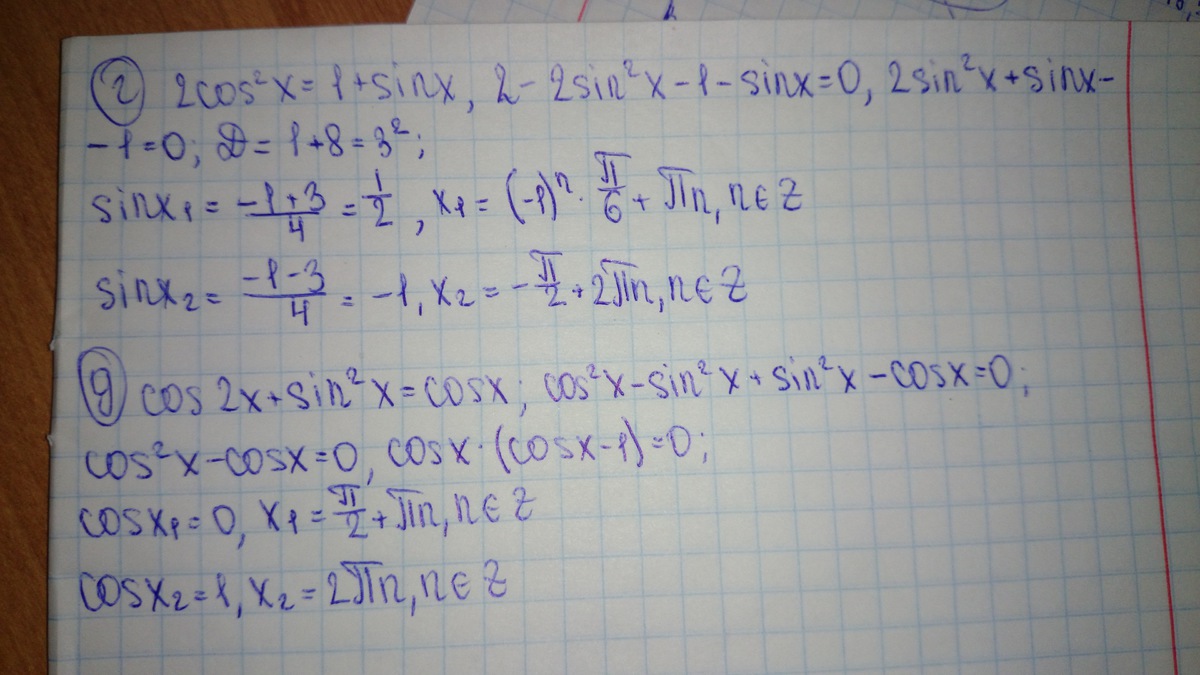 г) 2cos²x = 1 + sinx, 2 - 2sin²x - 1 - sinx = 0, 2sin²x + sinx -
- 1 = 0; D = 1 + 8 = 3²;
sinx₁ = (-1+3)/4 = 1/2, x₁ = (-1)ⁿ · π/6 + πn, n ∈ Z
sinx₂ = (-1-3)/4 = -1, x₂ = -π/2 + 2πn, n ∈ Z
g) cos2x + sin²x = cosx; cos²x - sin²x + sin²x - cosx = 0;
cos²x - cosx = 0, cosx · (cosx - 1) = 0;
cosx₁ = 0, x₁ = π/2 + πn, n ∈ Z
cosx₂ = 1, x₂ = 2πn, n ∈ Z